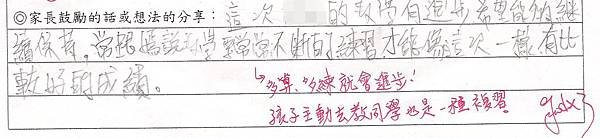 ◎家長鼓勵的話或想法的分享：這次 的數學有進步希望能夠繼
續保持，常跟媽說數學要常常不斷的練習才能像這次一樣有比
較好的成績。
↳多算、多練就會進步！
孩子主動去教同學也是一種複習！